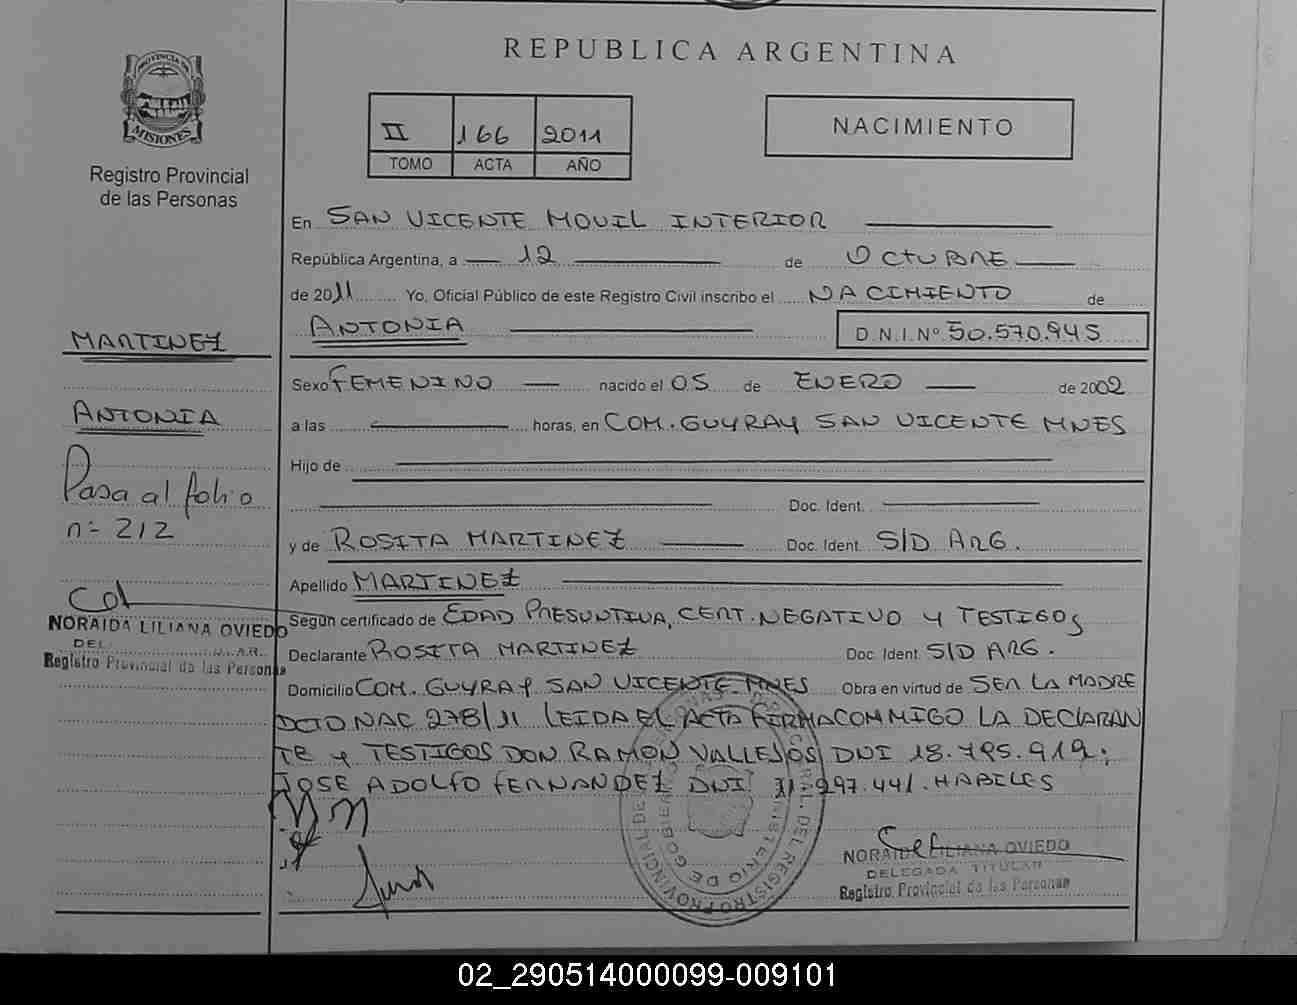 REPUBLICA ARGENTINA
PROVINCIA DE
MISIONES
Registro Provincial
de las Personas
II 166 2011
TOMO ACTA AÑO
NACIMIENTO
En SAN VICENTE MOVIL INTERIOR
República Argentina, a 12 de OCTUBRE
de 2011 Yo, Oficial Público de este Registro Civil inscribo el NACIMIENTO de
ANTONIA D.N.I.Nº 50.570.945
MARTINEZ
Sexo FEMENINO nacido el 05 de ENERO de 2002
ANTONIA
a las horas, en COM. GUYRAY SAN VICENTE MNES
Hijo de
Pasa al folio
n= 212
Doc. Ident.
y de ROSITA MARTINEZ Doc. Ident. S/D ARG.
Apellido MARTINEZ
Según certificado de EDAD PRESUNTIVA, CERT. NEGATIVO Y TESTIGOS
NORAIDA LILIANA OVIEDO
DEL.
Registro Provincial de las Personas
Declarante ROSITA MARTINEZ Doc. Ident. S/D ARG.
Domicilio COM. GUYRAY SAN VICENTE MNES Obra en virtud de SER LA MADRE
DCTO NAC 278/11 LEIDA EL ACTA FIRMA CONMIGO LA DECLARAN
TE Y TESTIGOS DON RAMON VALLEJOS DNI 18.795.919;
JOSE ADOLFO FERNANDEZ DNI 31.997.441. HABILES
NORAIDA LILIANA OVIEDO
DELEGADA TITULAR
Registro Provincial de las Personas
02_290514000099-009101